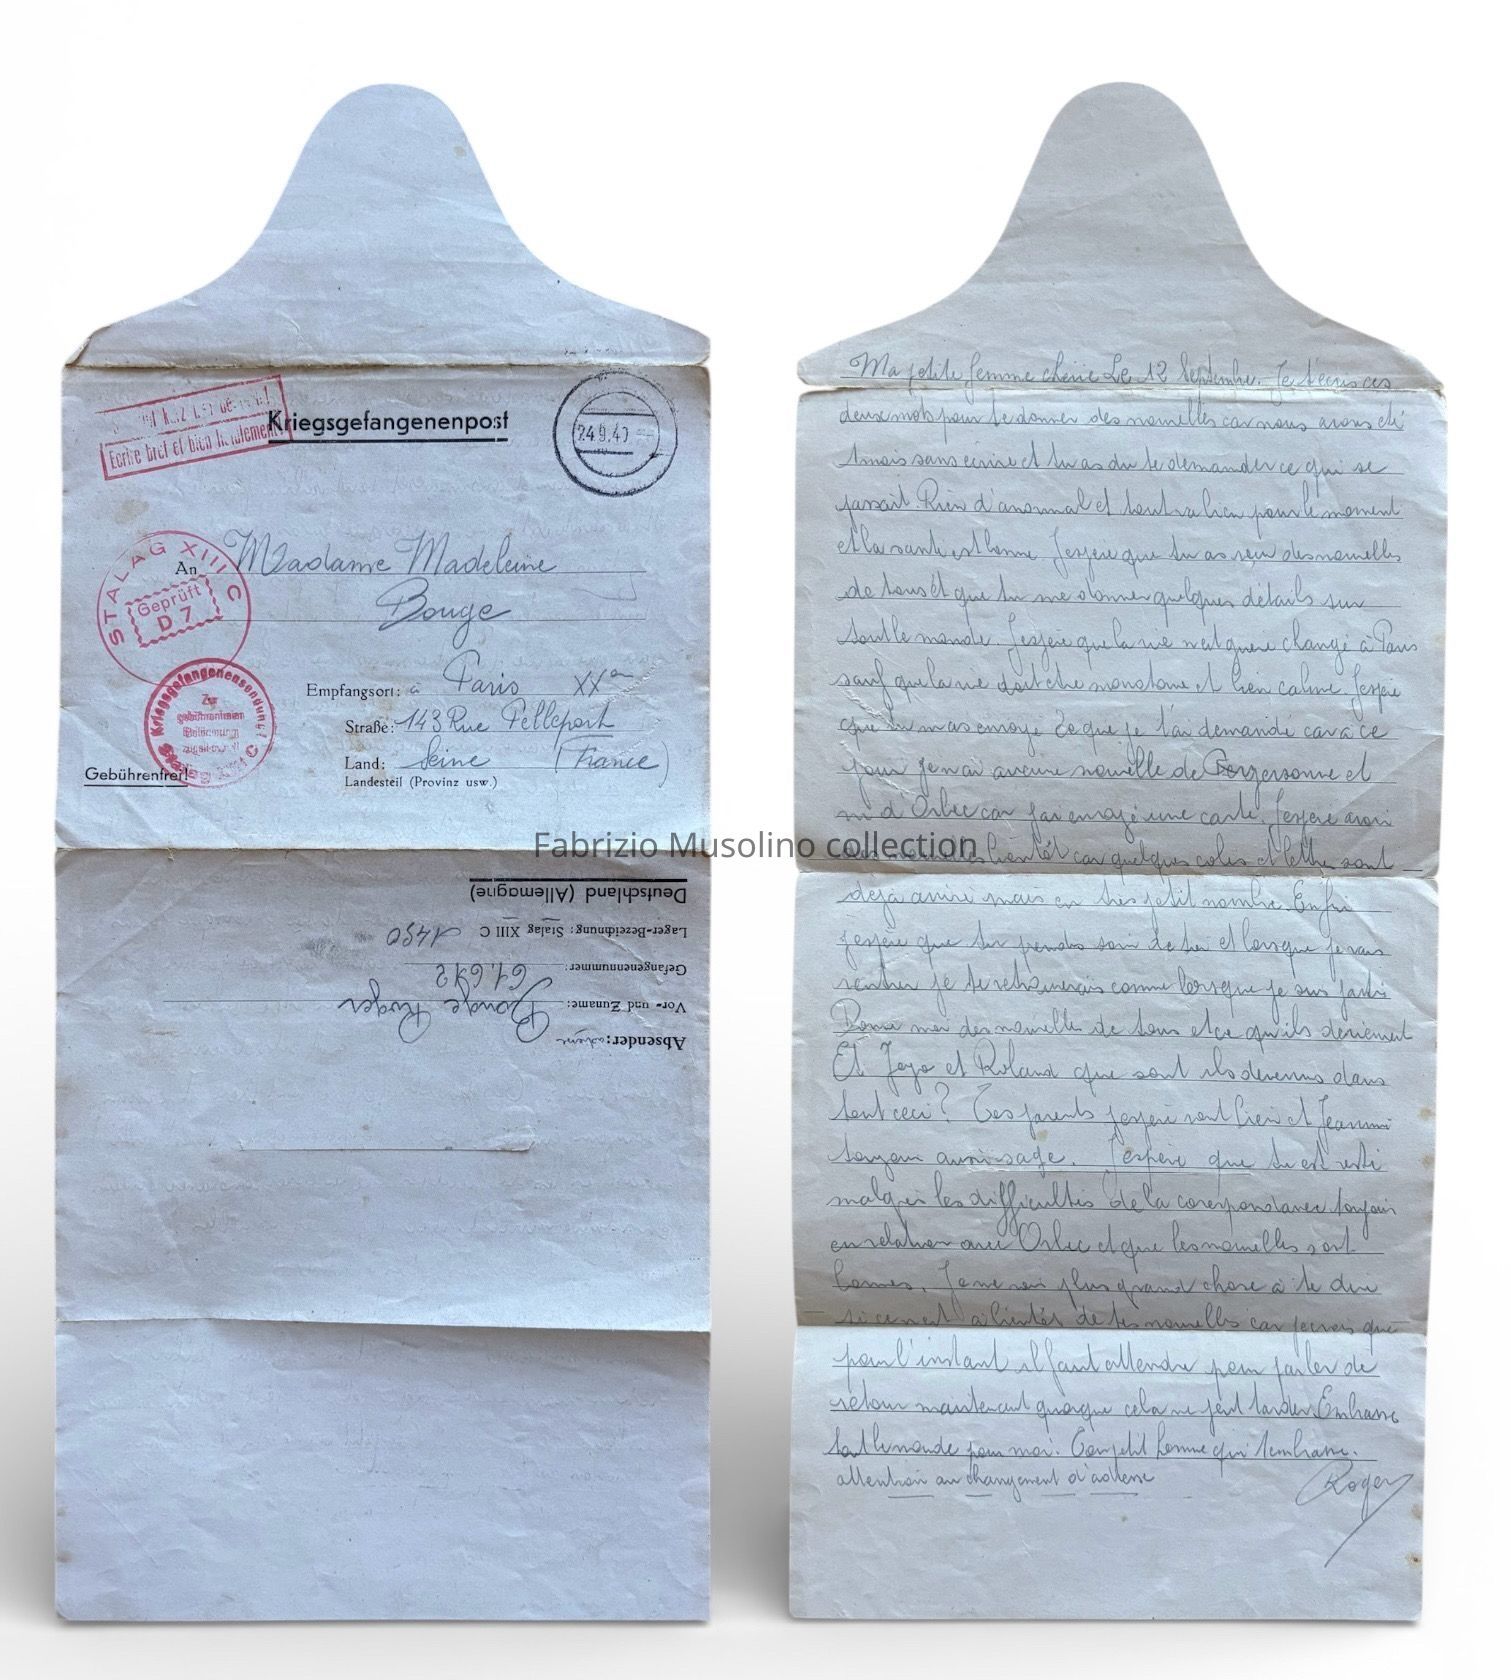 Ecrire bref et bien lisiblement!
Kriegsgefangenenpost
24.9.40
STALAG XIII C
Geprüft
D 7
An Madame Madeleine
Bouge
Kriegsgefangenensendung!
Zur
gebührenfreien
Beförderung
Stalag XIII C
Empfangsort: à Paris XXem
Straße: 143 Rue Pelleport
Land: Seine (France)
Landesteil (Provinz usw.)
Gebührenfrei!
Fabrizio Musolino collection
Absender:
Vor- und Zuname: Bouge Roger
Gefangenennummer: 61.692
Lager-Bezeichnung: Stalag XIII C 1450
Deutschland (Allemagne)
Ma petite femme cherie Le 12 Septembre. Je t'ecris ces
deux mots pour te donner des nouvelles car nous avons été
1 mois sans ecrire et tu as du te demander ce qui se
passait. Rien d'anormal et tout va bien pour le moment
et la sante est bonne J'espere que tu as reçu des nouvelles
de tous et que tu me donner quelques détails sur
tout le monde. J'espere que la vie n'at guere changé à Paris
sauf que la vie doit etre monotone et bien calme. J'espere
que tu m'as envoyé ce que je t'ai demandé car à ce
jour je n'ai aucune nouvelle de personne et
ni d'Orbec car j'ai envoyé une carte. J'espere avoir
des nouvelles bientôt car quelques colis et lettre sont
déjà arrivé mais en très petit nombre. Enfin
j'espère que tu prends soin de toi et lorsque je vais
rentrer je te retrouverais comme lorsque je suis parti
Donne moi des nouvelle de tous et ce qu'ils deviennent
Et Jojo et Roland que sont ils devenus dans
tout ceci? Tes parents j'espere vont bien et
toujour aussi sage. J'espère que tu est resté
malgrès les difficultés de la corespondance toujours
en relation avec Orbec et que les nouvelles sont
bonnes. Je ne vois plus grand chose à te dire
si ce n'est à bientôt de tes nouvelles car je crois que
pour l'instant il faut attendre pour parler de
retour maintenant quoique cela ne peut tarder. Embrasse
tout le monde pour moi. Ton petit homme qui t'embrasse.
attention au changement d'adresse
Roger